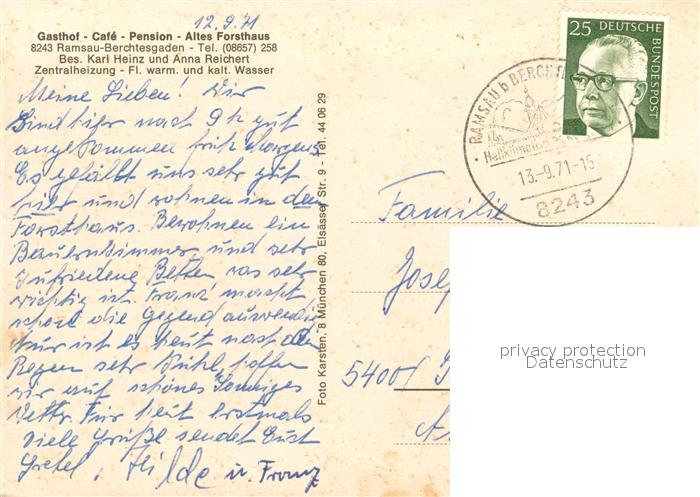 12.9.71
Gasthof - Café - Pension - Altes Forsthaus
8243 Ramsau-Berchtesgaden - Tel. (08657) 258
Bes. Karl Heinz und Anna Reichert
Zentralheizung - Fl. warm. und kalt. Wasser
Meine Lieben! Wir
sind hier nach 9 h gut
angekommen früh morgens.
Es gefällt uns sehr gut
hier und wohnen in dem
Forsthaus. Bewohnen ein
Bauernzimmer und sehr
zufriedene Betten was sehr
wichtig ist. Franz macht
schon die Gegend auswendig
Nur ist es heut nach dem
Regen sehr kühl, hoffen
wir auf schönes sonniges
Wetter. Für heut erstmals
viele Grüße sendet Euch
Gretel, Hilde u. Franz
Foto Karsten, 8 München 80, Elsässer Str. 9 - Tel. 44 06 29
25 DEUTSCHE BUNDESPOST
RAMSAU b BERCHT
Heilklimatischer
13.-9.71-15
8243
Familie
Josef
5400/
privacy protection
Datenschutz